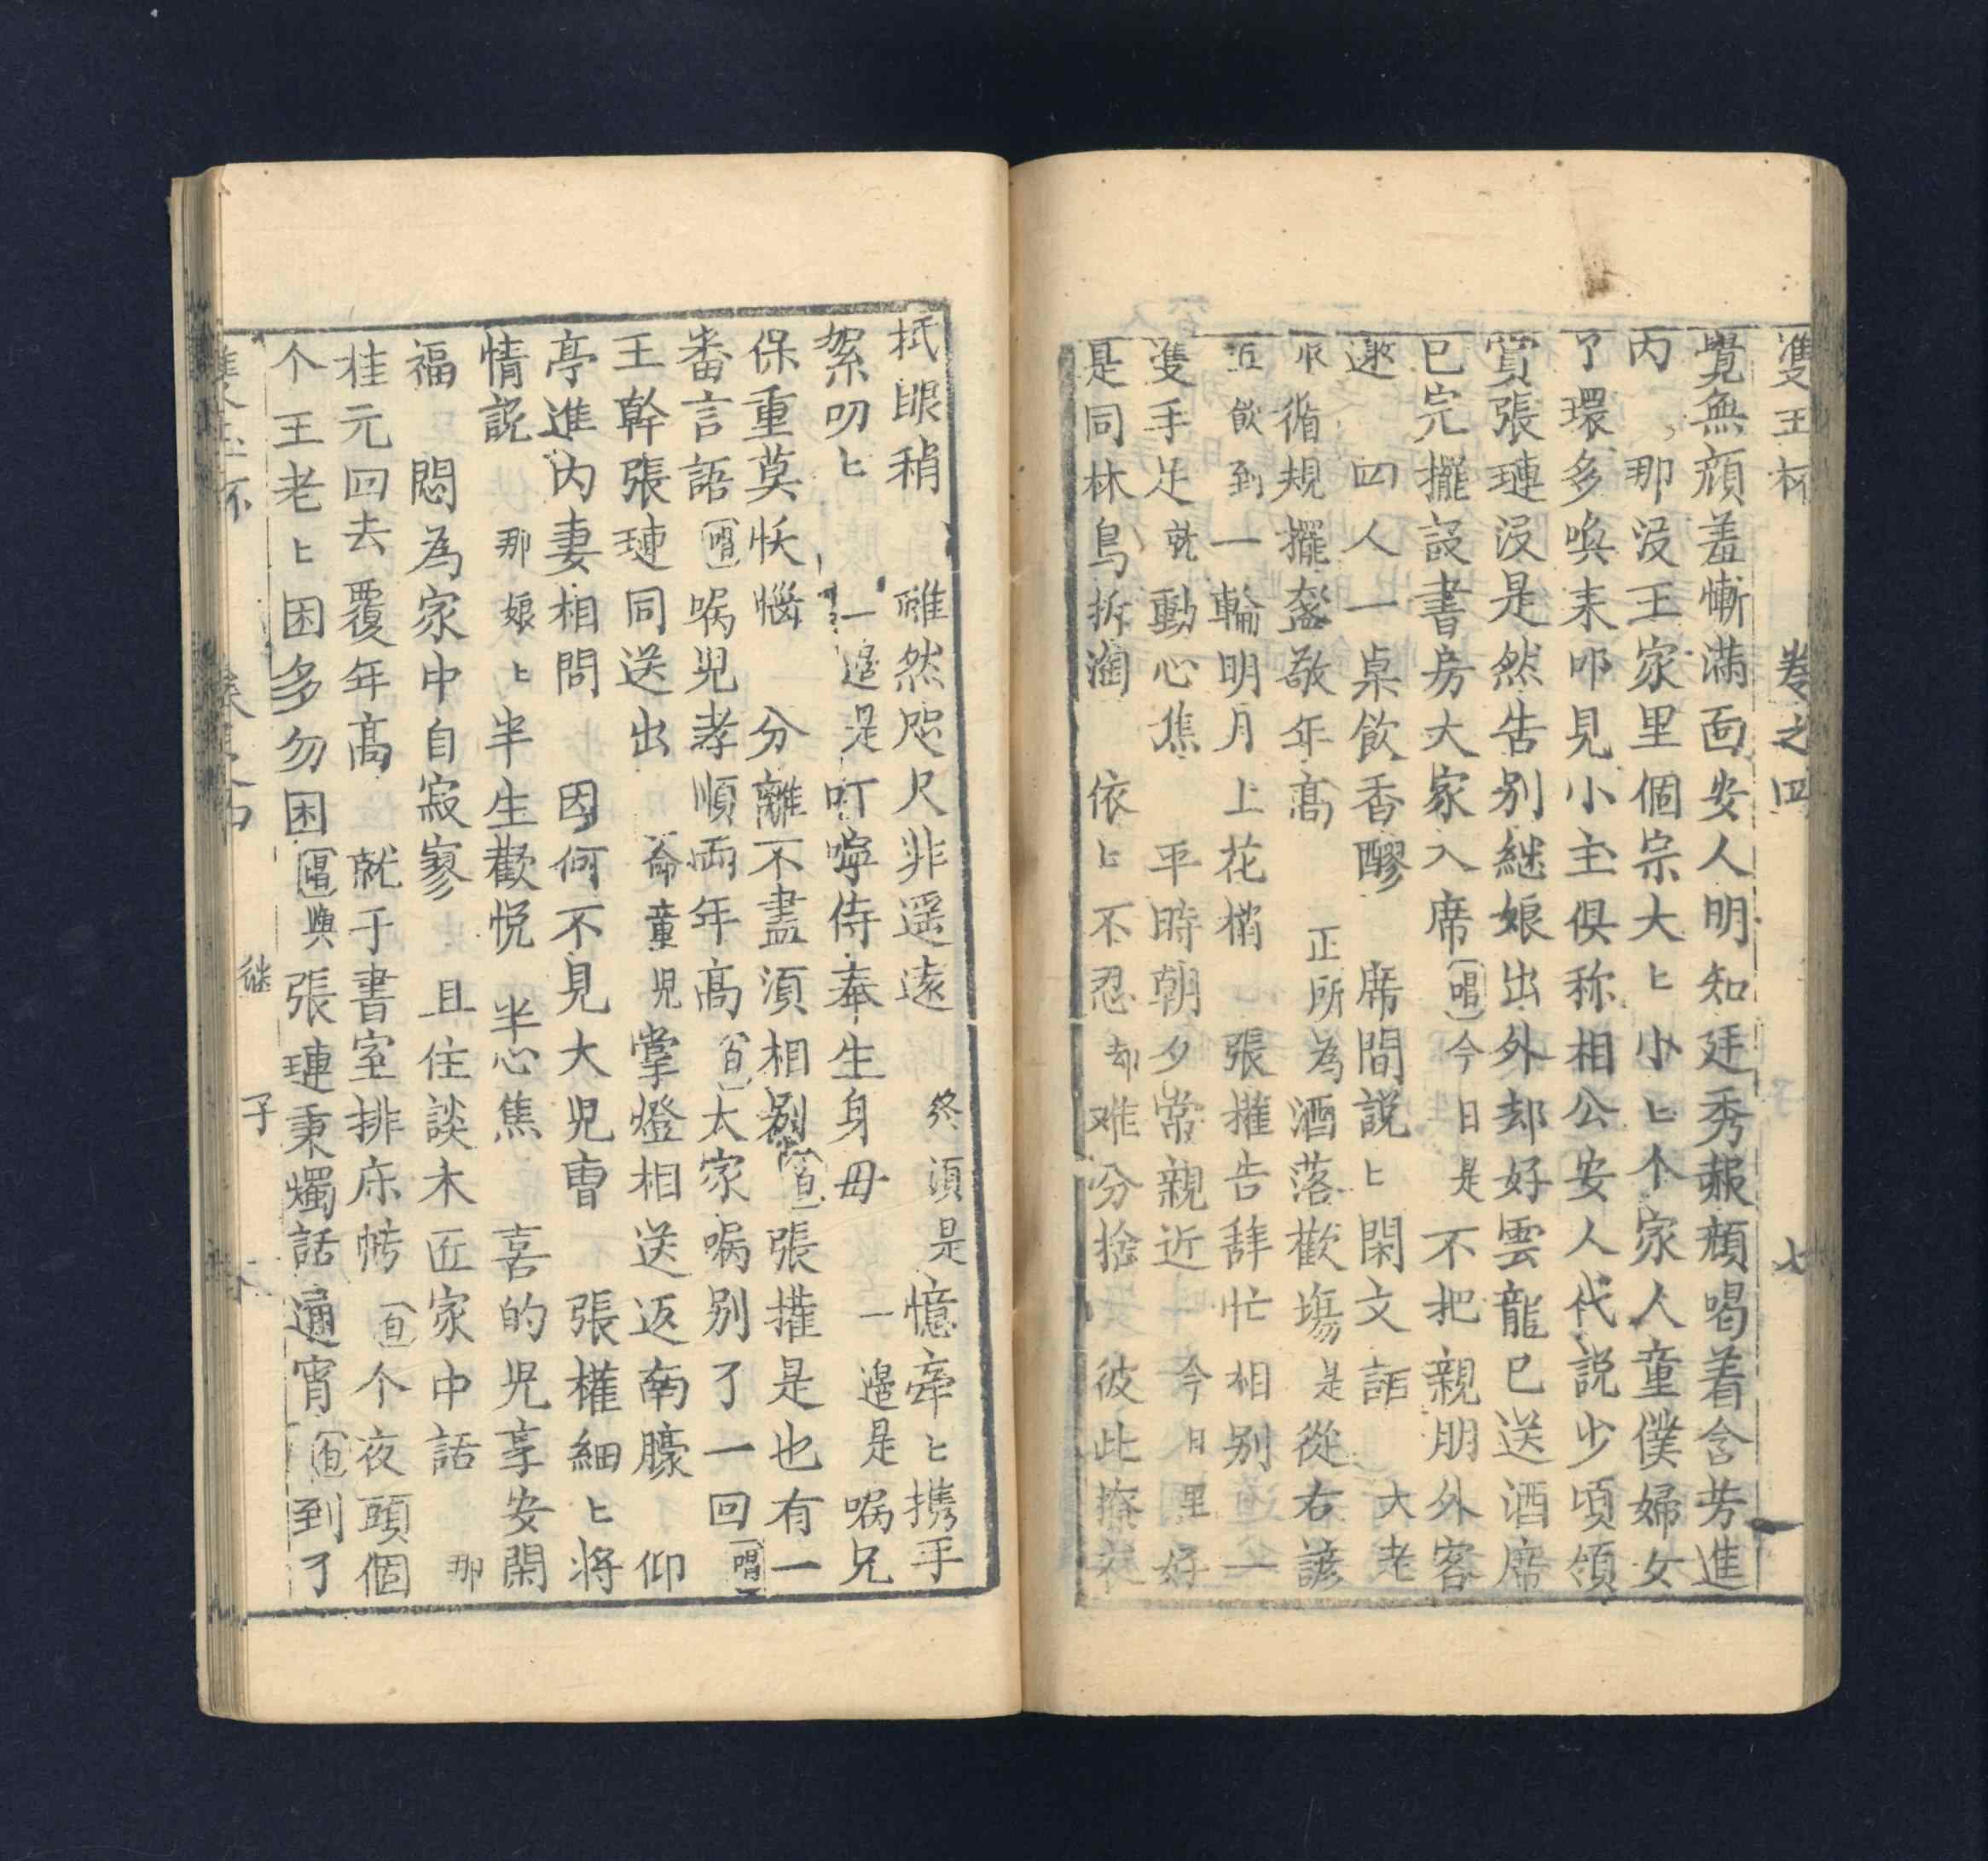 雙玉杯 卷之四 七
覺無顔羞慚滿面安人明知廷秀赧顔喝着含芳進
内 那没王家里個宗大匕小匕个家人童僕婦女
了環多喚来叩見小主俱称相公安人代説少頃領
賞張璉没是然告别継娘出外却好雲龍已送酒席
已完擺設書房大家入席唱今日是不把親朋外客
邀 四人一桌飲香醪 席間説匕閑文話 大老
循規擺盞敬年高 正所為酒落歡塲是從右諺
飲到一輪明月上花梢 張權告辞忙相别 一
隻手足就動心焦 平時朝夕常親近 今日里好
是同林鳥拆 依匕不忍却难分捨 彼此
抵眼稍 雖然咫尺非遥遠 終須是憶牽匕携手
絮叨匕 一邉是叮嚀侍奉生身母 一邉是嘱兄
保重莫恹惱 分離不盡須相别白張權是也有一
番言語唱嘱兒孝順両年高白太家嘱别了一回唱
王幹張璉同送出 命童兒掌燈相送返南牕 仰
亭進内妻相問 因何不見大兒曹 張權細匕将
情説 那娘匕半生歡悦半心焦 喜的兒享安閑
福 悶為家中自寂寥 且住談木匠家中話 那
桂元回去覆年高 就于書室排床帏 白个夜頭個
个王老匕困多勿困唱與張璉秉燭話通宵 白到了
継 子